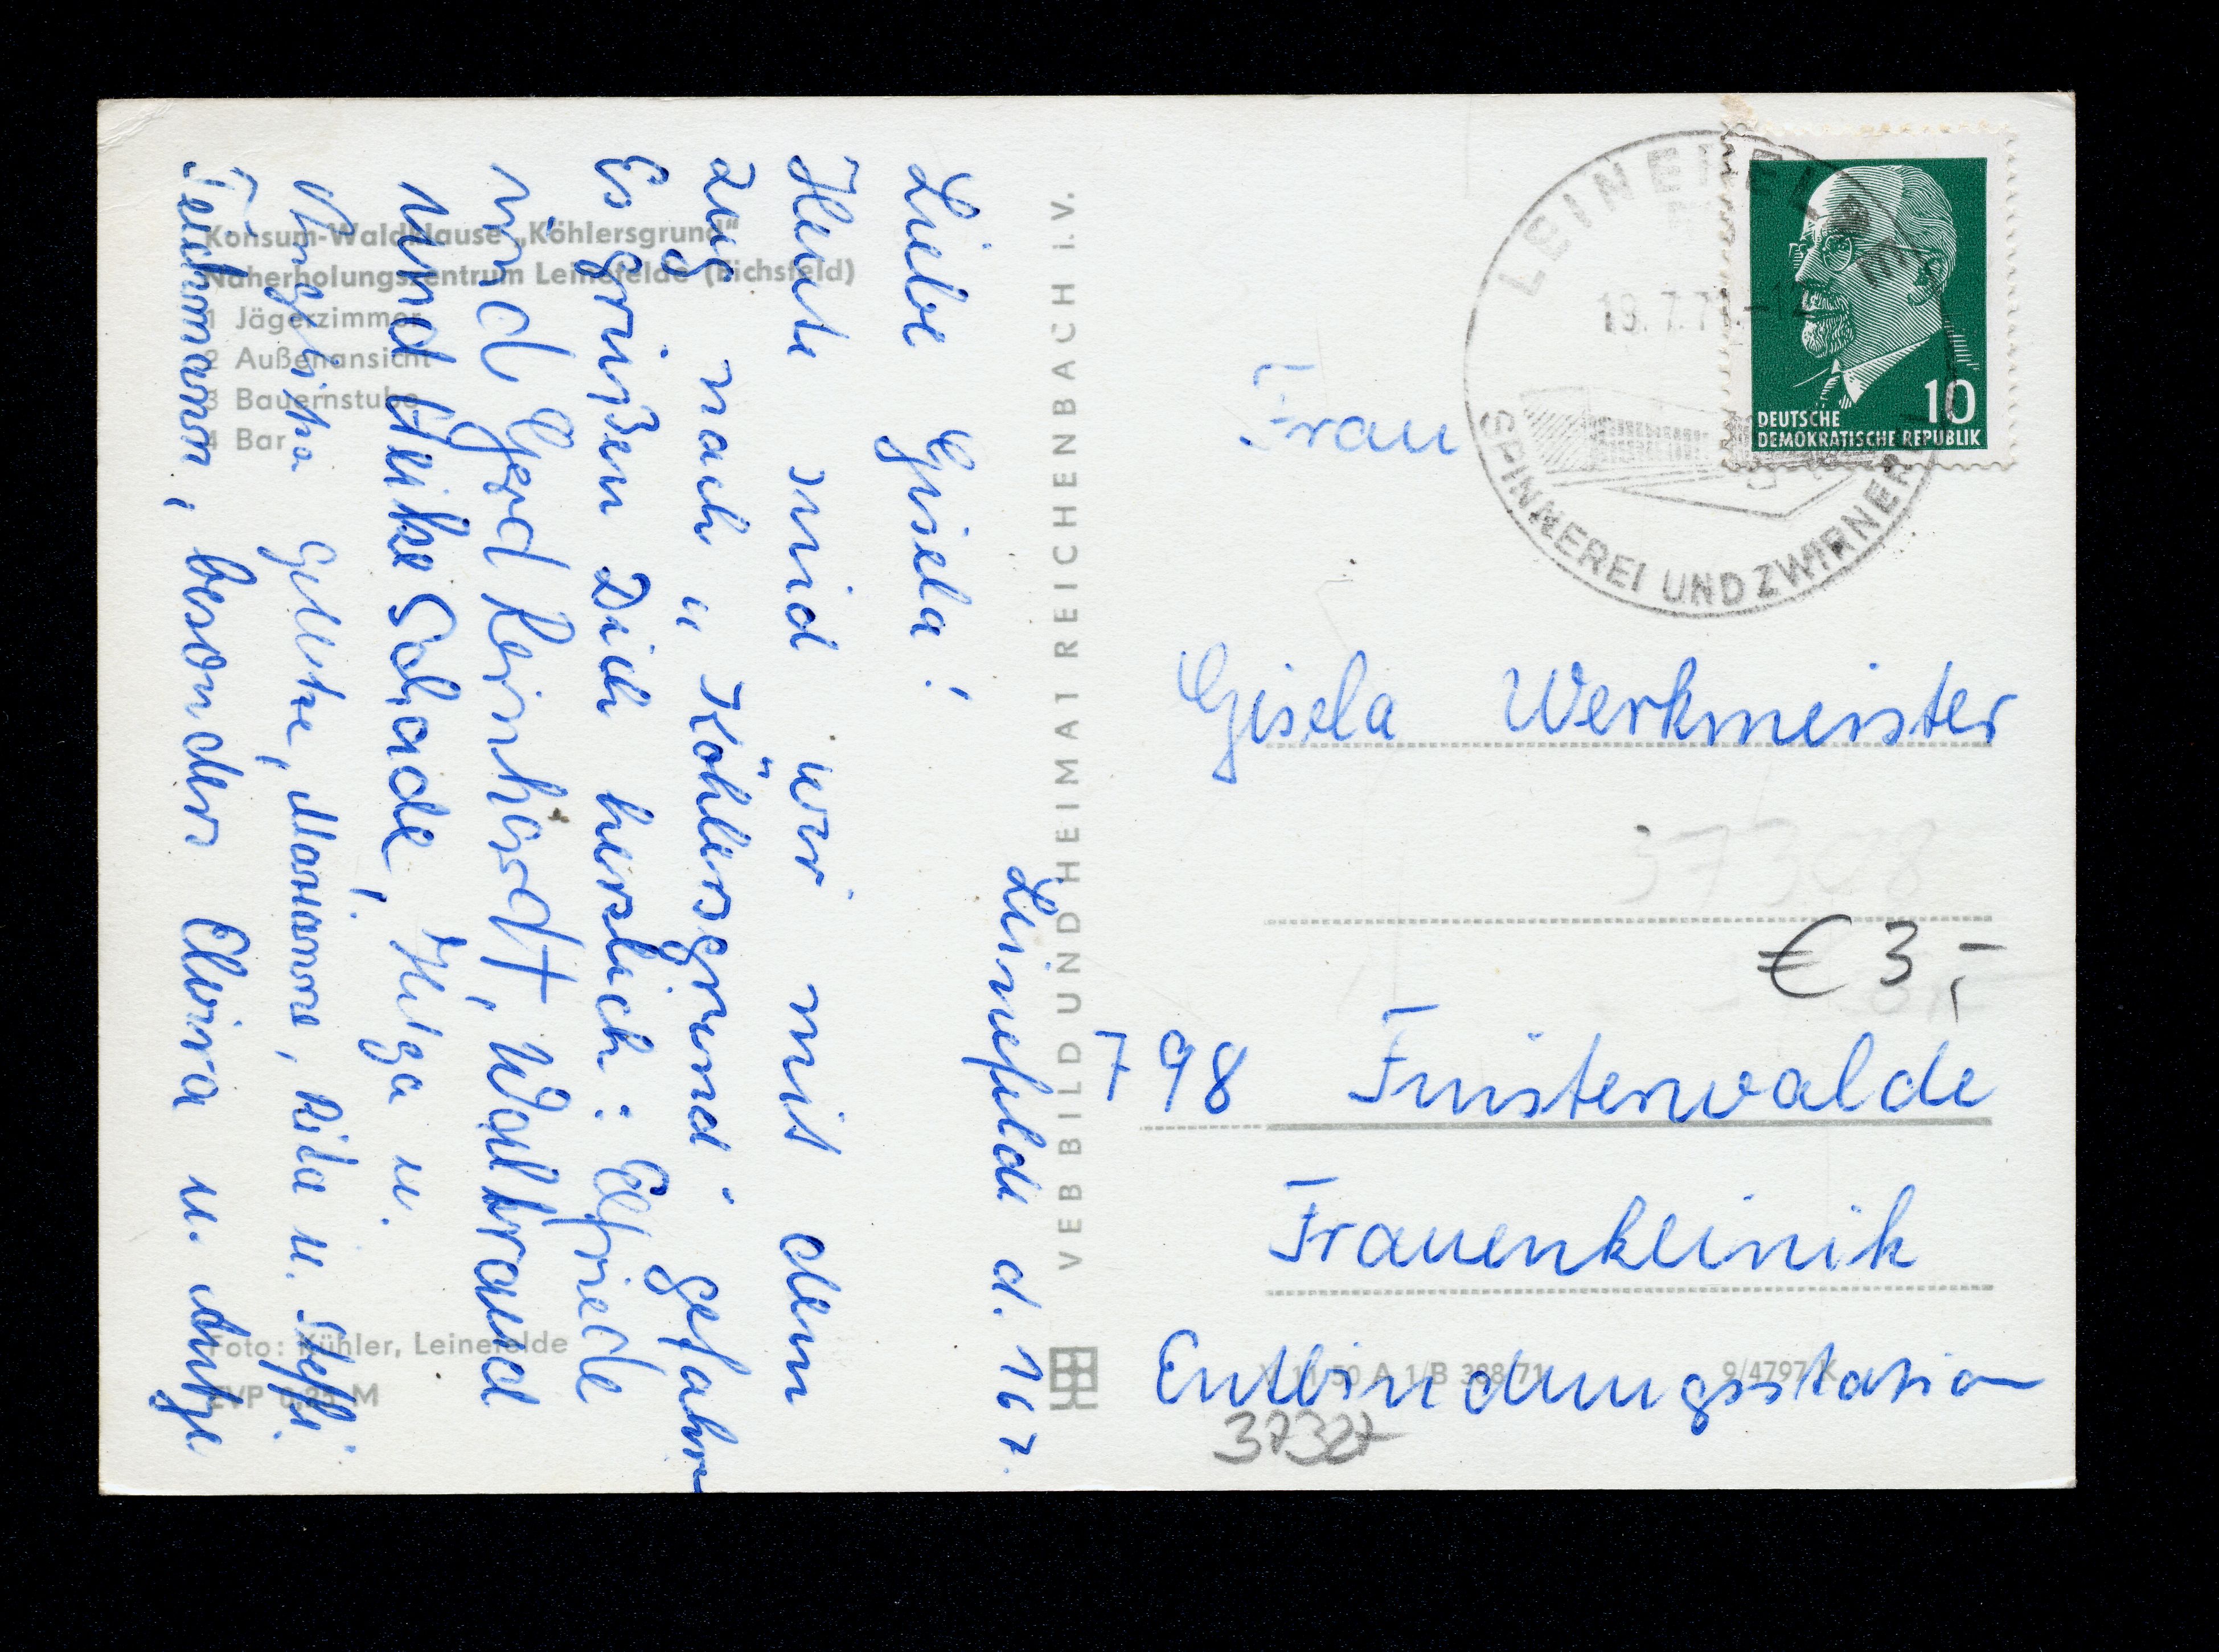 Konsum-Waldklause „Köhlersgrund"
Naherholungszentrum Leinefelde (Eichsfeld)
1 Jägerzimmer
2 Außenansicht
3 Bauernstube
4 Bar
Foto: Kühler, Leinefelde
EVP 0,25 M
Leinefelde d. 16 7.
Liebe Gisela!
Heute sind wir mit dem
Zug nach „Köhlersgrund" gefahren
Es grüßen Dich herzlich: Elfriede
und Gerd Reinhardt, Waltraud
und Heike Schade, Helga u.
Angelika Marianne, Rita u. Steffi
Teichmann, besonders Elvira u. Antje
VEB BILD UND HEIMAT REICHENBACH i.V.
LEINEFELDE
19.7.71.-12
SPINNEREI UND ZWIRNEREI
10
DEUTSCHE
DEMOKRATISCHE REPUBLIK
Frau
Gisela Werkmeister
37308
€ 3,-
798 Finsterwalde
Frauenklinik
Entbindungsstation
A 1/B 388/71 9/4797 K
37327